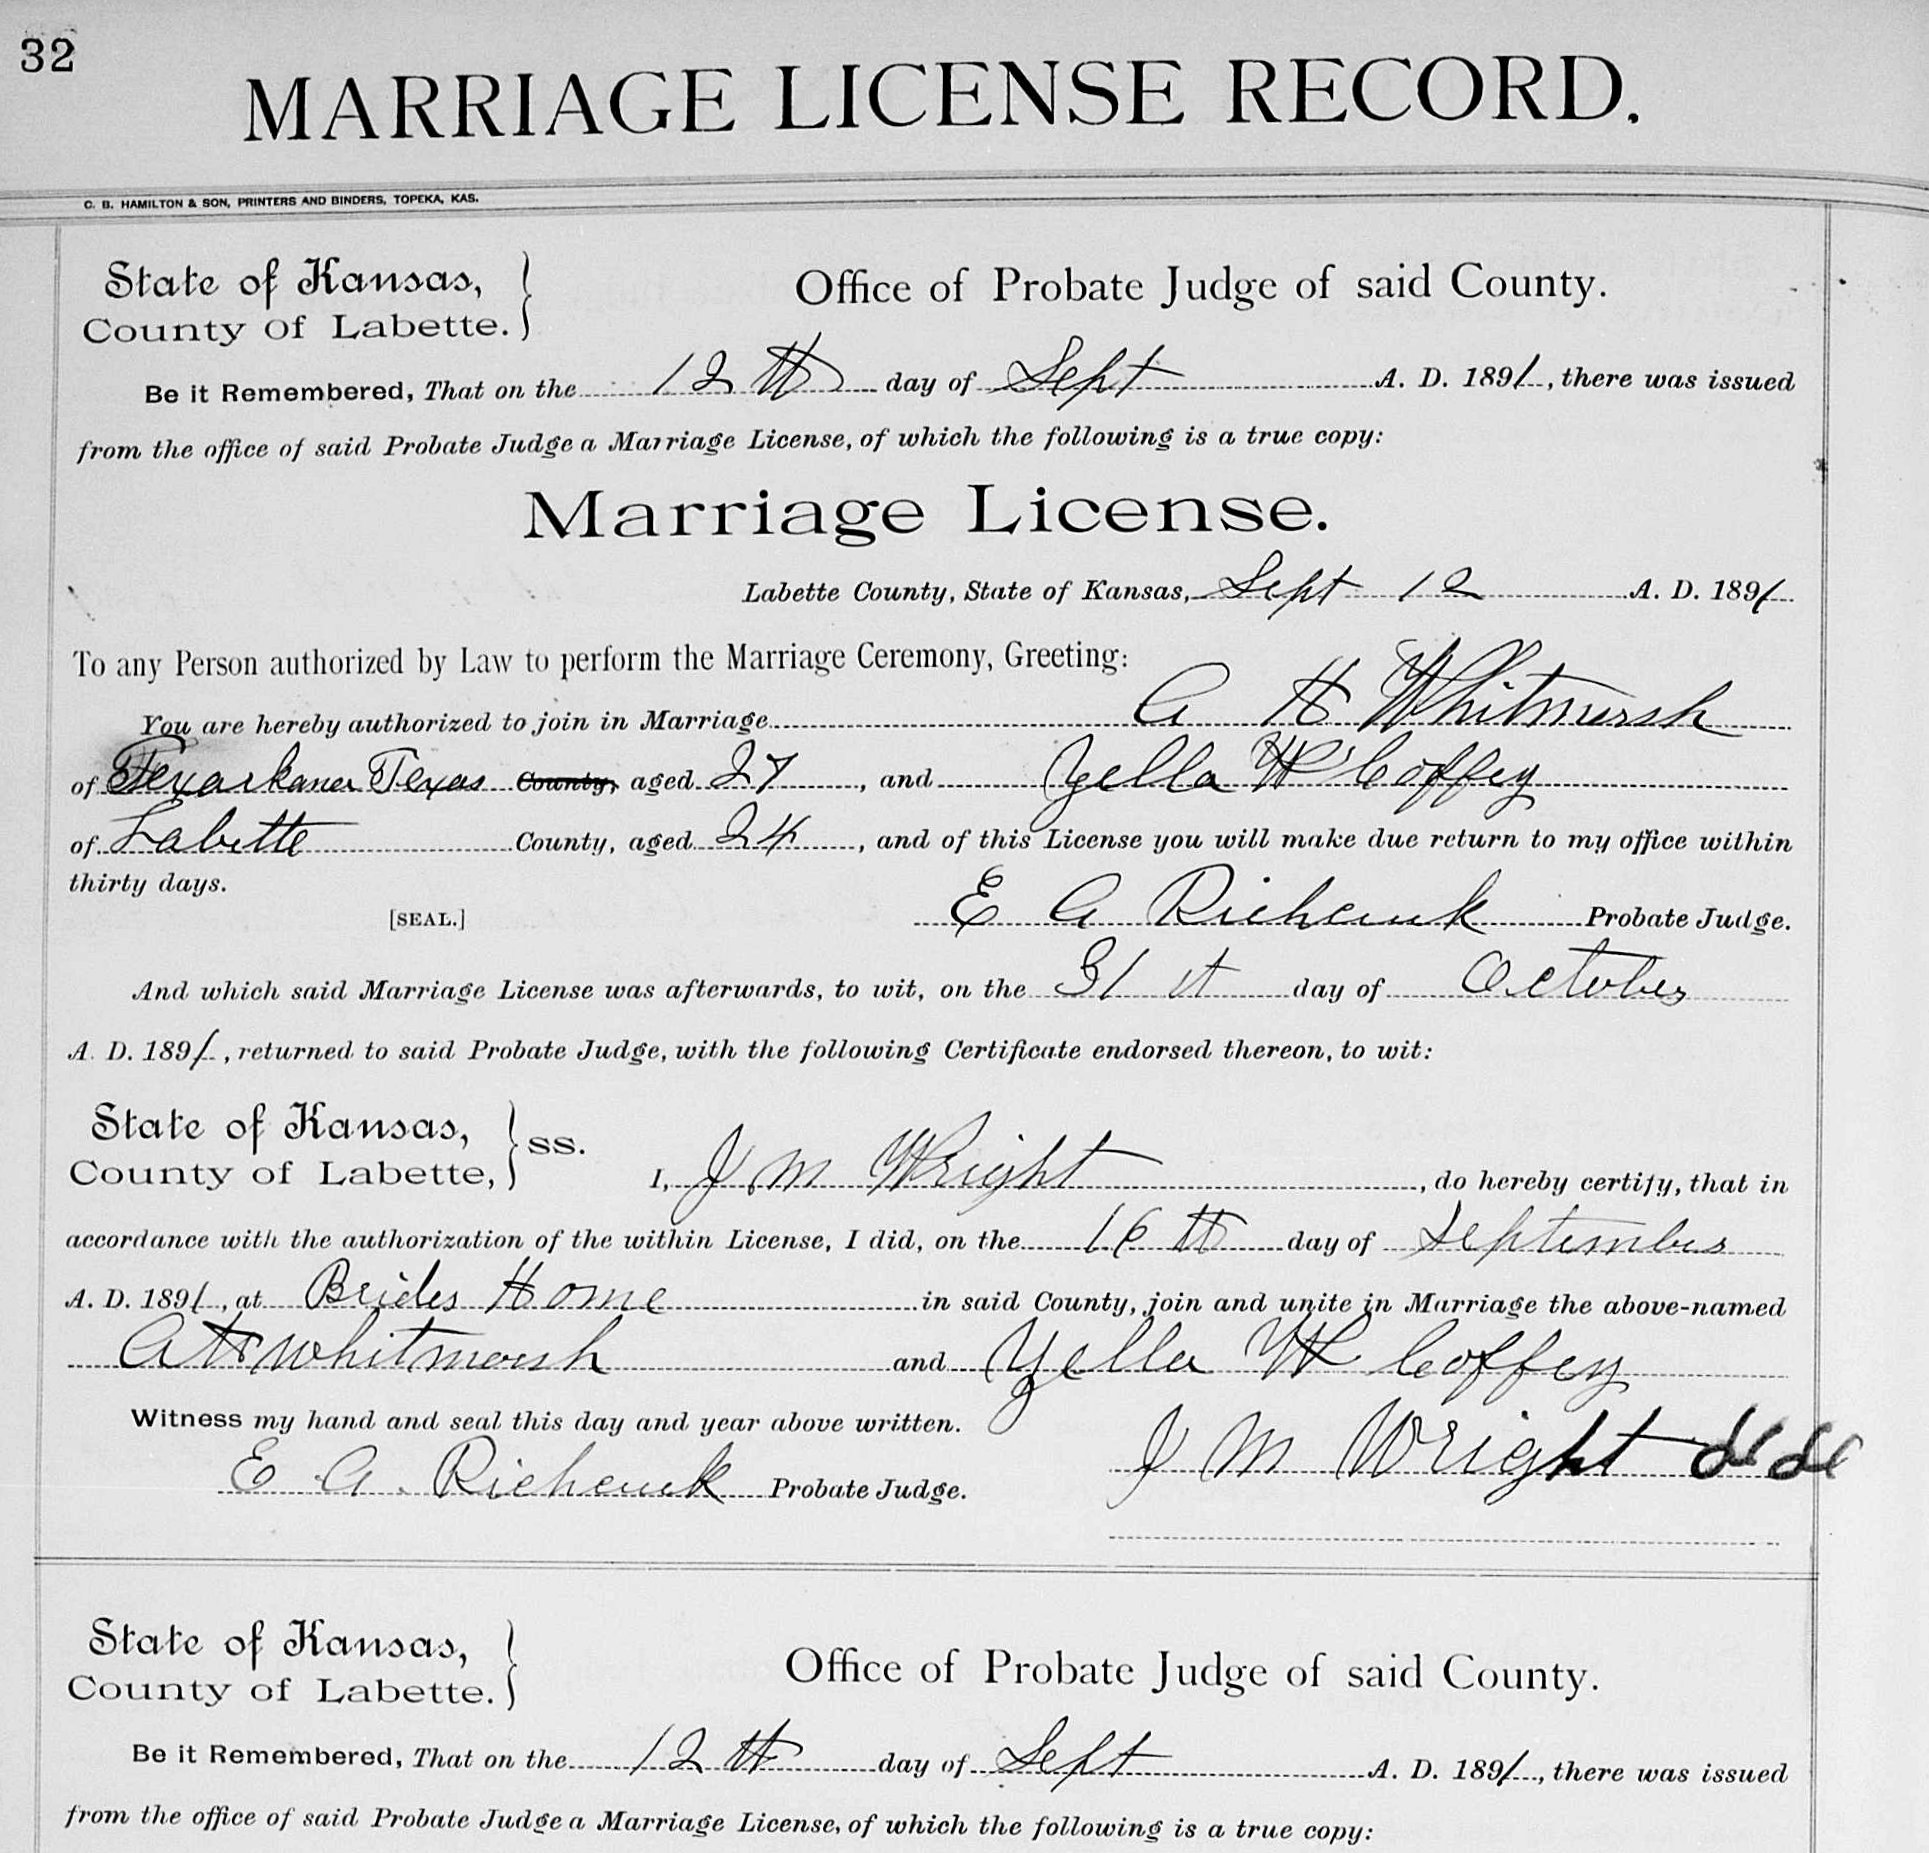 32
MARRIAGE LICENSE RECORD.
C. B. HAMILTON & SON, PRINTERS AND BINDERS, TOPEKA, KAS.
State of Kansas,
County of Labette.
Office of Probate Judge of said County.
Be it Remembered, That on the 12th day of Sept A. D. 1891, there was issued
from the office of said Probate Judge a Marriage License, of which the following is a true copy:
Marriage License.
Labette County, State of Kansas, Sept 12 A. D. 1891
To any Person authorized by Law to perform the Marriage Ceremony, Greeting:
You are hereby authorized to join in Marriage A H Whitmarsh
of Texarkana Texas County, aged 27, and Yella W Coffey
of Labette County, aged 24, and of this License you will make due return to my office within
thirty days.
[SEAL.]
E A Probate Judge.
And which said Marriage License was afterwards, to wit, on the 31st day of October
A. D. 1891, returned to said Probate Judge, with the following Certificate endorsed thereon, to wit:
State of Kansas,
County of Labette,
SS.
I, J M Wright, do hereby certify, that in
accordance with the authorization of the within License, I did, on the 16th day of September
A. D. 1891, at Brides Home in said County, join and unite in Marriage the above-named
A H Whitmarsh and Yella W Coffey
Witness my hand and seal this day and year above written.
J M Wright
E A. Probate Judge.
State of Kansas,
County of Labette.
Office of Probate Judge of said County.
Be it Remembered, That on the 12th day of Sept A. D. 1891, there was issued
from the office of said Probate Judge a Marriage License, of which the following is a true copy: